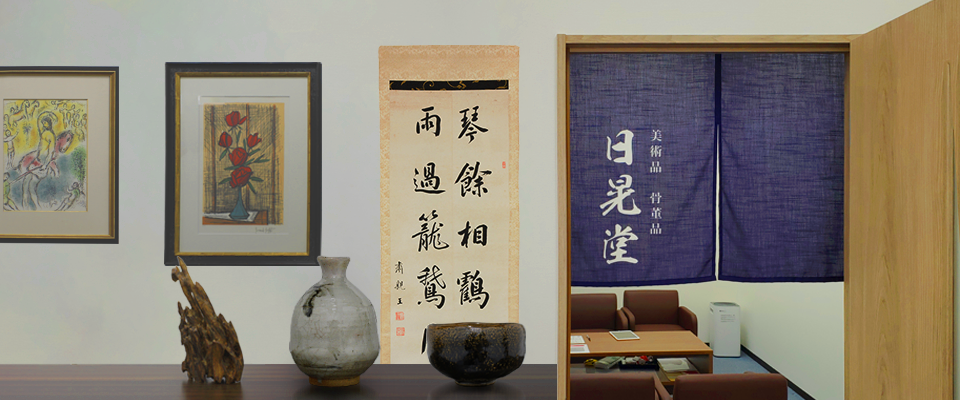 琴餘相鸖
雨過籠鵞
肅親王
美術品 骨董品
日晃堂